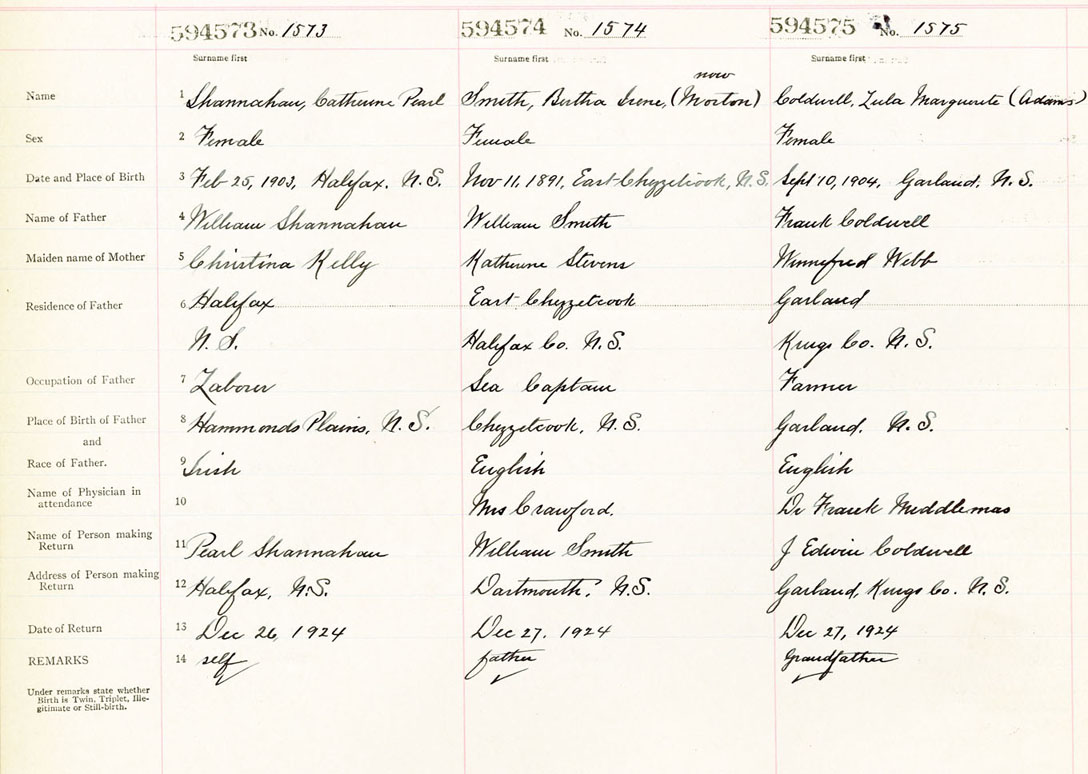 594573 No. 1573 594574 No. 1574 594575 No. 1575
Surname first Surname first Surname first
now
Name 1 Shannahan, Catherine Pearl Smith, Bertha Irene, (Morton) Coldwell, Zula Marguerite (Adams)
Sex 2 Female Female Female
Date and Place of Birth 3 Feb 25, 1903, Halifax, N.S. Nov 11, 1891, East Chezzetcook, N.S. Sept 10, 1904, Garland, N.S.
Name of Father 4 William Shannahan William Smith Frank Coldwell
Maiden name of Mother 5 Christina Kelly Katherine Stevens Winnefred Webb
Residence of Father 6 Halifax East Chezzetcook Garland
N. S. Halifax Co. N.S. Kings Co. N.S.
Occupation of Father 7 Laborer Sea Captain Farmer
Place of Birth of Father 8 Hammonds Plains, N.S. Chezzetcook, N.S. Garland, N.S.
and
Race of Father. 9 Irish English English
Name of Physician in
attendance 10 Mrs Crawford. Dr Frank Middlemas
Name of Person making
Return 11 Pearl Shannahan William Smith J Edwin Coldwell
Address of Person making
Return 12 Halifax, N.S. Dartmouth, N.S. Garland, Kings Co. N.S.
Date of Return 13 Dec 26, 1924 Dec 27, 1924 Dec 27, 1924
REMARKS 14 self father Grandfather
Under remarks state whether
Birth is Twin, Triplet, Ille-
gitimate or Still-birth.